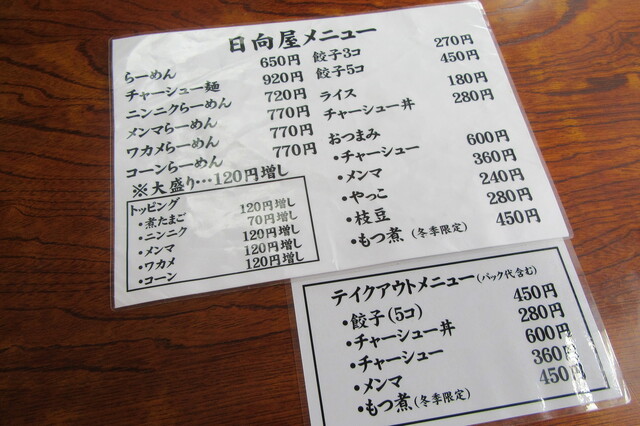 日向屋メニュー
らーめん 650円
チャーシュー麺 920円
ニンニクらーめん 720円
メンマらーめん 770円
ワカメらーめん 770円
コーンらーめん 770円
※大盛り…120円増し
トッピング
・煮たまご 120円増し
・ニンニク 70円増し
・メンマ 120円増し
・ワカメ 120円増し
・コーン 120円増し
餃子3コ 270円
餃子5コ 450円
ライス 180円
チャーシュー丼 280円
おつまみ
・チャーシュー 600円
・メンマ 360円
・やっこ 240円
・枝豆 280円
・もつ煮 (冬季限定) 450円
テイクアウトメニュー(パック代含む)
・餃子(5コ) 450円
・チャーシュー丼 280円
・チャーシュー 600円
・メンマ 360円
・もつ煮(冬季限定) 450円